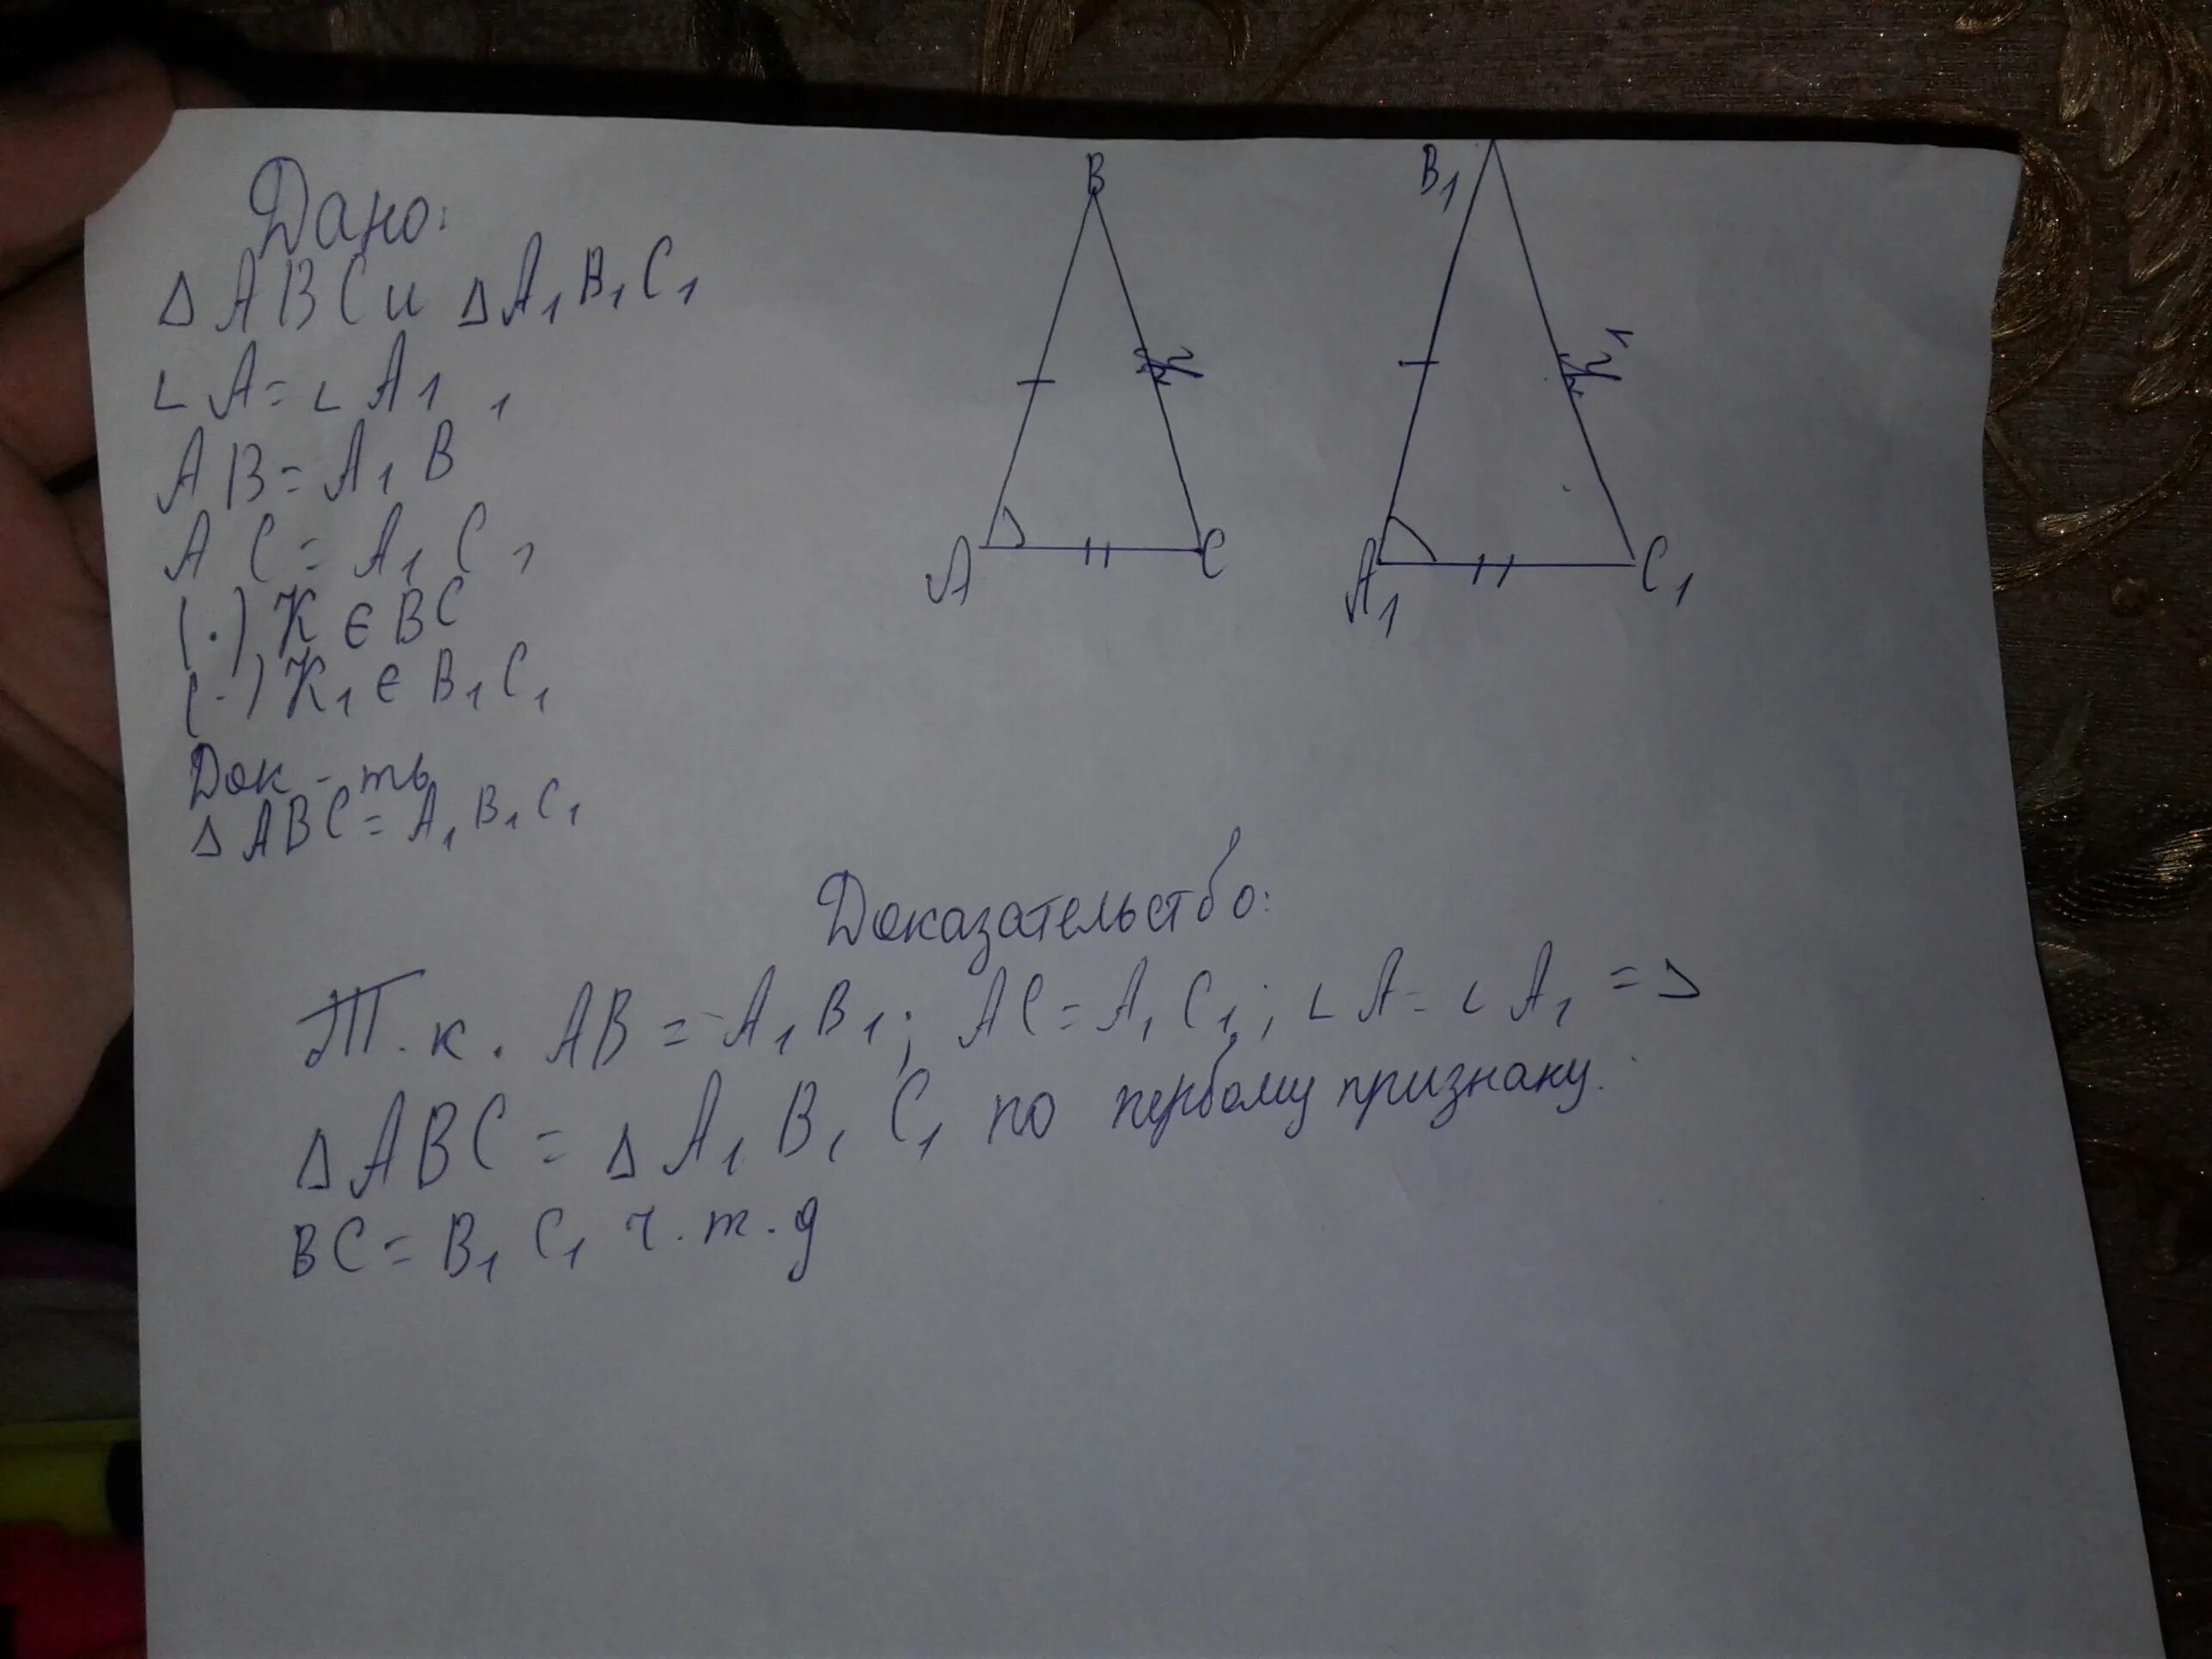 Дано:
Δ ABC и Δ A₁B₁C₁
∠A = ∠A₁ ,
AB = A₁B
AC = A₁C₁
(·) K ∈ BC
(·) K₁ ∈ B₁C₁
Док-ть
Δ ABC = A₁B₁C₁
B
A
C
B₁
A₁
C₁
Доказательство:
Т.к. AB = A₁B₁; AC = A₁C₁; ∠A = ∠A₁ =>
Δ ABC = Δ A₁B₁C₁ по первому признаку.
BC = B₁C₁ ч.т.д